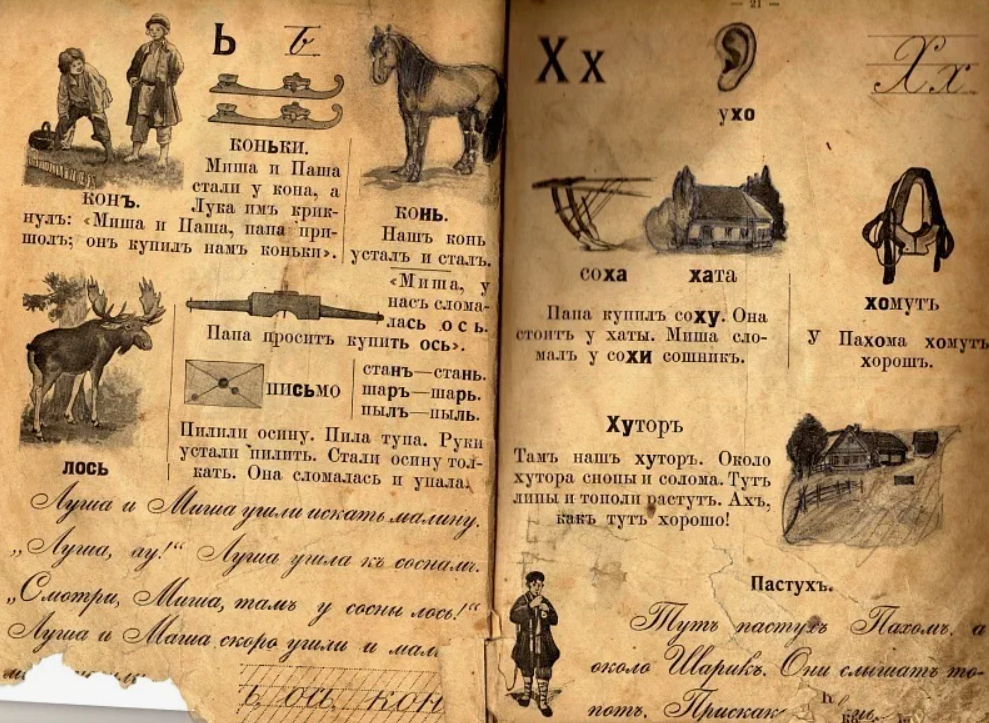 Ь ь
коньки.
конъ.
Миша и Паша
стали у кона, а
Лука имъ крик-
нулъ: «Миша и Паша, папа при-
шолъ; онъ купилъ намъ коньки».
конь.
Нашъ конь
усталъ и сталъ.
«Миша, у
насъ слома-
лась ось.
Папа проситъ купить ось».
письмо
станъ—стань.
шаръ—шарь.
пылъ—пыль.
лось
Пилили осину. Пила тупа. Руки
устали пилить. Стали осину тол-
кать. Она сломалась и упала.
Луша и Миша ушли искать малину.
„Луша, ау!“ Луша ушла къ соснамъ.
„Смотри, Миша, тамъ у сосны лось!“
Луша и Маша скоро ушли и
ь, ось, кон
— 21 —
Х х
Х х
ухо
соха
хата
хомутъ
Папа купилъ соху. Она
стоитъ у хаты. Миша сло-
малъ у сохи сошникъ.
У Пахома хомутъ
хорошъ.
Хуторъ
Тамъ нашъ хуторъ. Около
хутора снопы и солома. Тутъ
липы и тополи растутъ. Ахъ,
какъ тутъ хорошо!
Пастухъ.
Тутъ пастухъ Пахомъ, а
около Шарикъ. Они слышатъ то-
потъ.